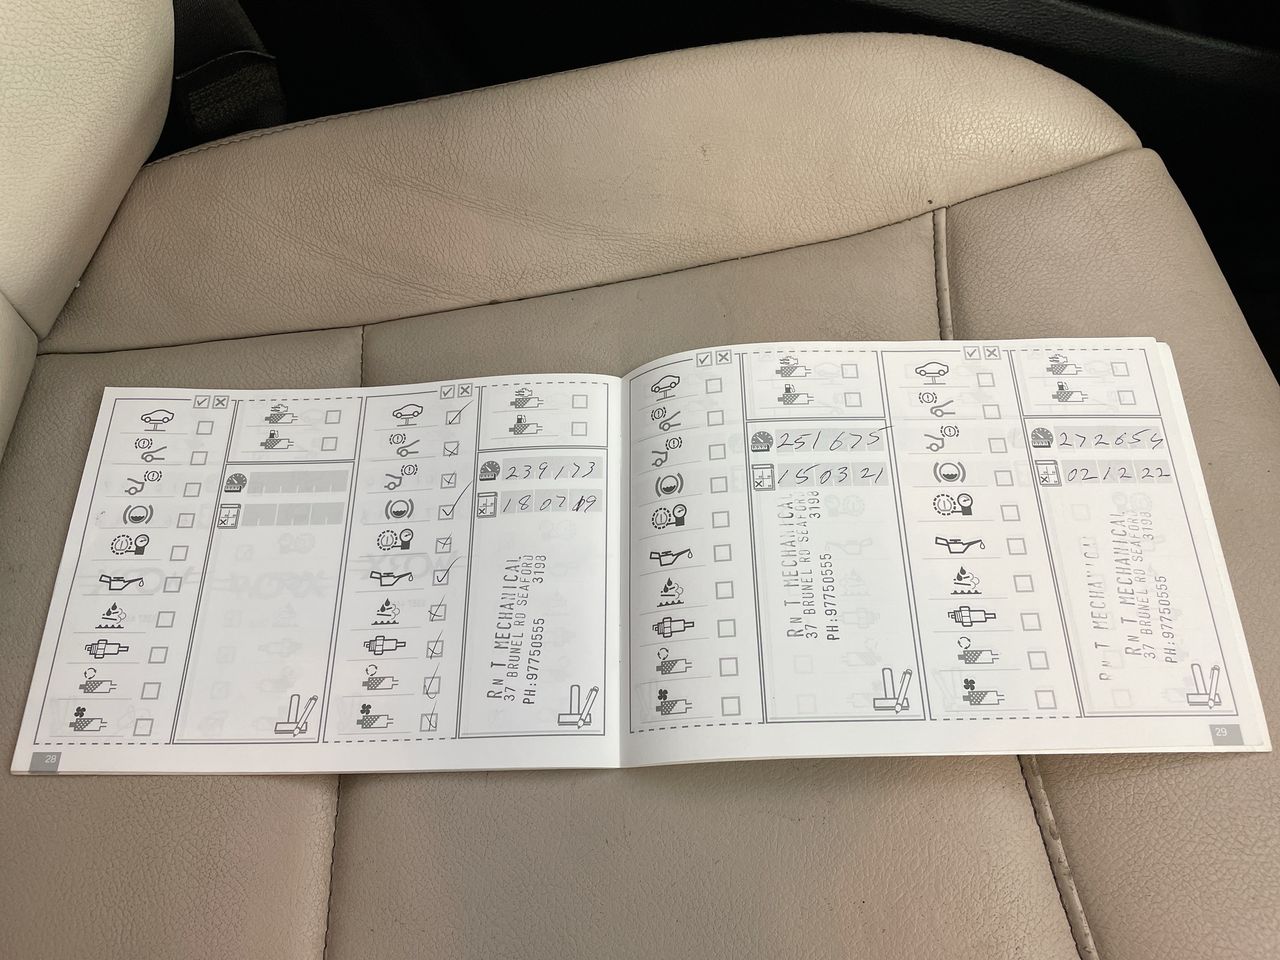 239173
18 07 19
RNT MECHANICAL
37 BRUNEL RD SEAFORD
PH:97750555 3198
28
251675
15 03 21
RNT MECHANICAL
37 BRUNEL RD SEAFORD
PH:97750555 3198
272654
02 12 22
RNT MECHANICAL
RNT MECHANICAL
37 BRUNEL RD SEAFORD
PH:97750555 3198
29